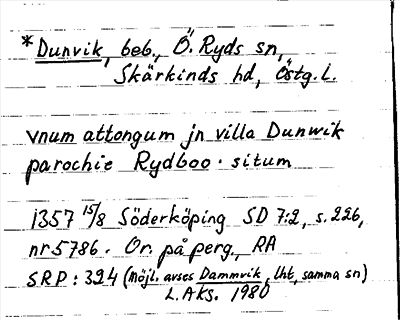 *Dunvik, beb., Ö. Ryds sn,
Skärkinds hd, Östg. L.
vnum attongum jn villa Dunwik
parochie Rydboo · situm
1357 15/8 Söderköping SD 7:2, s. 226,
nr 5786. Or. på perg., RA
SRP: 324 (Möjl. avses Dammvik, lht, samma sn)
L. Aks. 1980